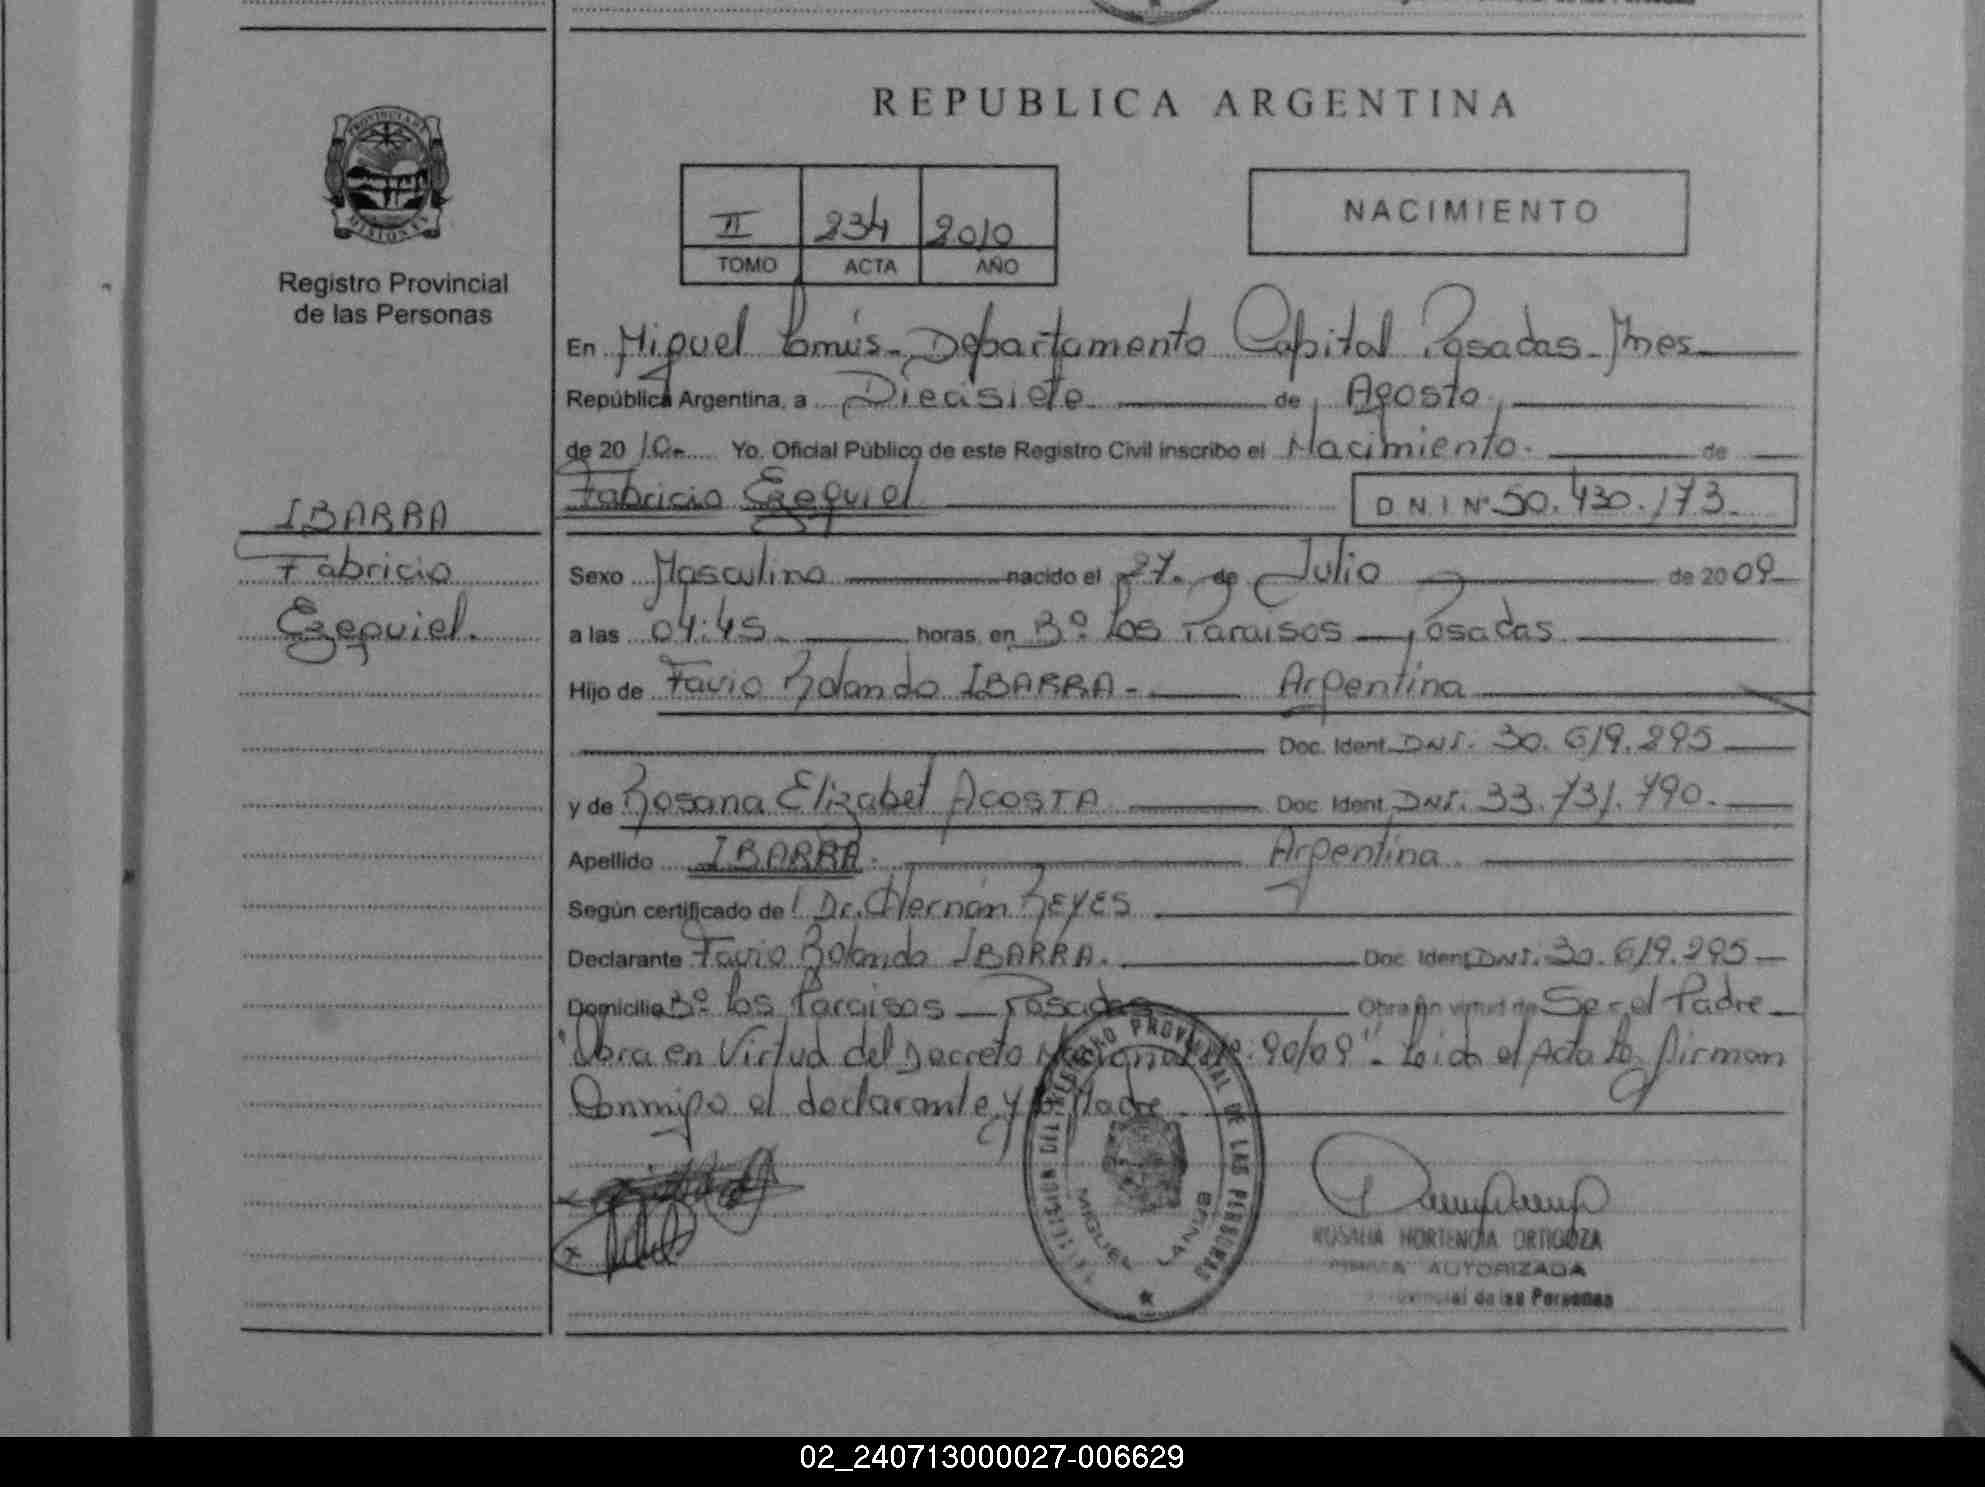 REPUBLICA ARGENTINA
PROVINCIA DE
MISIONES
Registro Provincial
de las Personas
II 234 2010
TOMO ACTA AÑO
NACIMIENTO
En Miguel Lanús - Departamento Capital Posadas - Mnes
República Argentina, a Diecisiete de Agosto
de 2010 Yo. Oficial Público de este Registro Civil inscribo el Nacimiento. de
Fabricio Ezequiel D N I Nº 50.430.173
IBARRA
Fabricio
Ezequiel.
Sexo Masculino nacido el 27 de Julio de 2009
a las 04:45 horas, en Bº Los Paraisos - Posadas
Hijo de Favio Rolando IBARRA - Argentina
Doc. Ident. DNI. 30.619.295
y de Rosana Elizabet ACOSTA Doc. Ident. DNI. 33.731.790.
Apellido IBARRA. Argentina
Según certificado de Dr. Hernán REYES
Declarante Favio Rolando IBARRA. Doc. Ident. DNI. 30.619.295
Domicilio Bº Los Paraisos - Posadas Obra en virtud de Ser el Padre
"Obra en Virtud del Decreto Nacional Nº 90/09" - Leida el Acta la firman
Conmigo el declarante y la Madre
REGISTRO PROVINCIAL DE LAS PERSONAS
MIGUEL LANUS
ROSALIA HORTENCIA ORTIGOZA
FIRMA AUTORIZADA
Provincial de las Personas
02_240713000027-006629